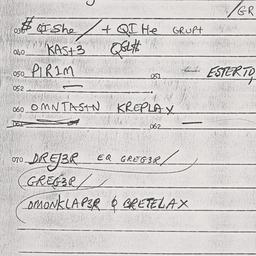 /GR
030 $ QIShe / + QIHe GRUPT
040 KAST3 QSL#
050 PIRIM 051 ESTERTO
052 —
060 OMNTNSTN KREPLAX
061 062 —
070 DREJ3R EQ GREG3R/
GREG3R/
OMONKLAP3R & GRETELAX